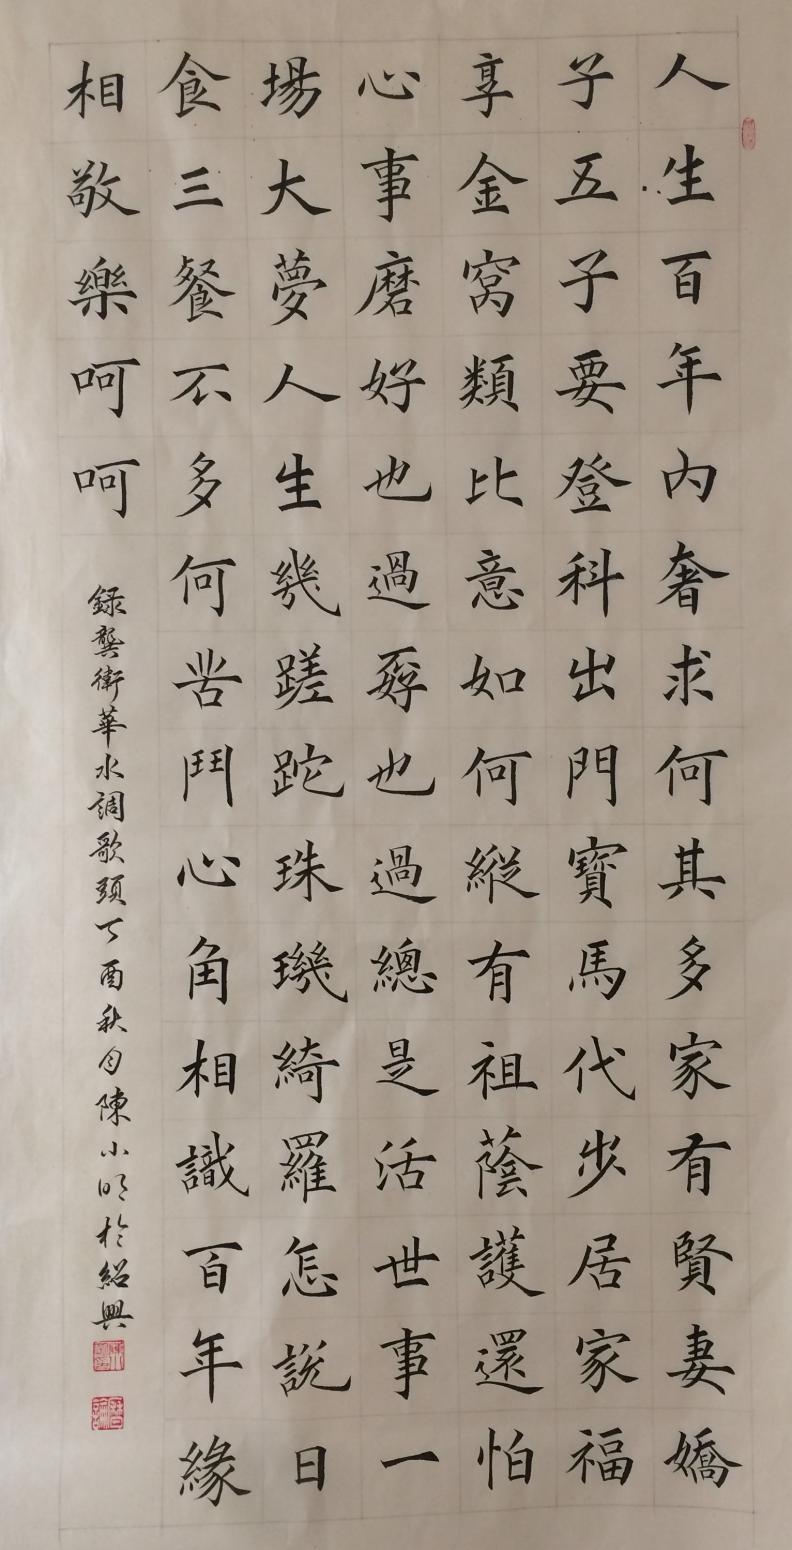 人生百年內奢求何其多家有賢妻嬌
子五子要登科出門寶馬代步居家福
享金窩類比意如何縱有祖蔭護還怕
心事磨好也過孬也過總是活世事一
場大夢人生幾蹉跎珠璣綺羅怎說日
食三餐不多何苦鬥心角相識百年緣
相敬樂呵呵
録龔衛華水調歌頭丁酉秋月陳小明於紹興